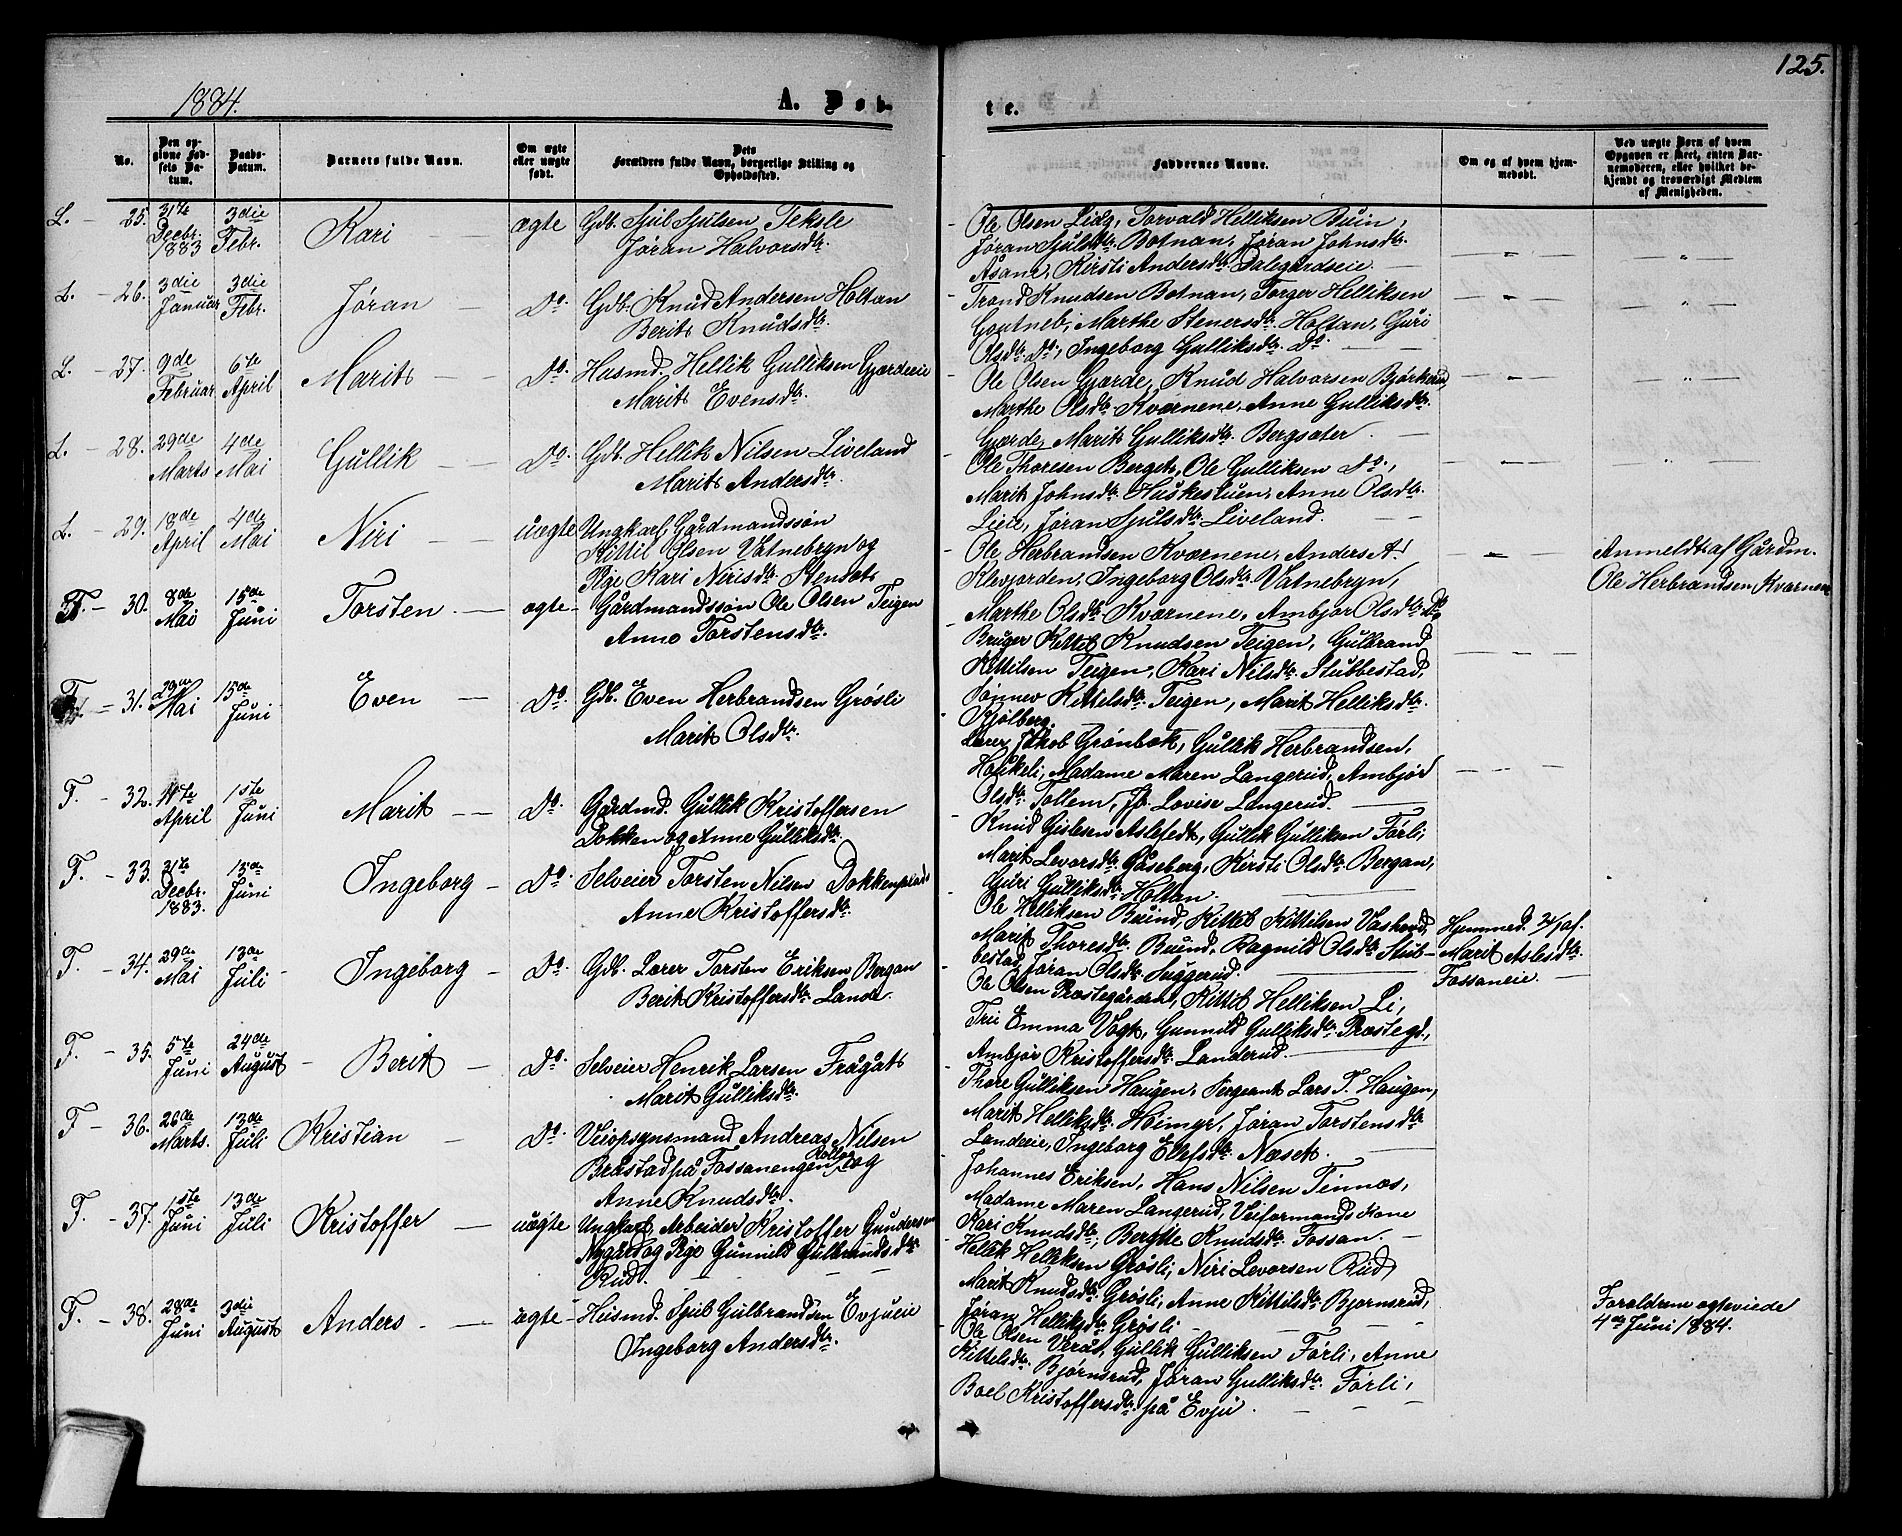 125.
1884.
A. Døb-
te.
No.
Den opgivne Fødsels Datum.
Daabs-Datum.
Barnets fulde Navn.
Om ægte eller uægte født.
Dets Forældres fulde Navn, borgerlige Stilling og Opholdssted.
Faddernes Navne.
Om og af hvem hjemmedøbt.
Ved uægte Børn af hvem Opgaven er skeet, enten Barnemoderen, eller hvilket bekjendt og troværdigt Medlem af Menigheden.
L. - 25. 31te Decbr. 1883 3die Febr. Kari - ægte Gdb. Sjul Sjulsen Teksle
Jøran Halvorsdtr.
Ole Olsen Lidz, Torvald Helliksen Buin,
Jøran Sjulsdtr. Botnan, Jøran Johnsdtr.
Åsane, Kirsti Andersdtr. Dalegårdseie.
L. - 26. 3die Januar 3die Febr. Jøran - Do. Gdb. Knud Andersen Holtan
Berit Knudsdtr.
Trond Knudsen Botnan, Torger Helliksen
Goutneb, Marthe Stenersdtr. Holtan, Guri
Olsdtr. Do., Ingeborg Gulliksdtr. Do.
L. - 27. 9de Februar 6te April Marit - Do. Husmd. Hellik Gulliksen Gjærdeeie
Marit Evensdtr.
Ole Olsen Gjærde, Knud Halvorsen Bjørkerud,
Marthe Olsdtr. Kværnene, Anne Gulliksdtr.
Gjærde, Marit Gulliksdtr. Bergsater.
L. - 28. 29de Marts 4de Mai Gullik - Do. Gdb. Hellik Nilsen Liveland
Marit Andersdtr.
Ole Thoresen Berget, Ole Gulliksen Do.,
Marit Johnsdtr. Huskestuen, Anne Olsdtr.
Lien, Jøran Sjulsdtr. Liveland.
L. - 29. 18de April 4de Mai Niri - uægte Ungkarl, Gårdmandssøn
Kittil Olsen Vatnebryn og
Pige Kari Nirisdtr. Stensæt
Ole Herbrandsen Kværnene, Anders A.
Klevjorden, Ingeborg Olsdtr. Vatnebryn,
Marthe Olsdtr. Kværnene, Ambjør Olsdtr. Do.
Anmeldt af Gårdm.
Ole Herbrandsen Kværnene
F. - 30. 8de Mai 15de Juni Torsten - ægte - Gårdmandssøn Ole Olsen Teigen
Anne Torstensdtr.
Bruger Kittel Knudsen Teigen, Gulbrand
Kittilsen Teigen, Kari Nilsdtr. Stubbestad,
Sønnev Kittelsdtr. Teigen, Marit Helliksdtr.
Fjølberg.
F. - 31. 29de Mai 15de Juni Even - Do. Gdb. Even Herbrandsen Grøsli
Marit Olsdtr.
Lærer Jakob Grønbæk, Gullik Herbrandsen,
Haukeli, Madame Maren Langerud, Ambjør
Olsdtr. Tollem, Jo Lovise Langerud.
F. - 32. 14te April 1ste Juni Marit - Do. Gårdmd. Gullik Kristoffersen
Dokken og Anne Gulliksdtr.
Knud Gislesen Aslefedt, Gullik Gulliksen Førli,
Marit Levorsdtr. Gåseberg, Kirsti Olsdtr. Bergan,
Guri Gulliksdtr. Holtan.
F. - 33. 31te Decbr. 1883. 15de Juni Ingeborg - Do. Selveier Torsten Nilsen Dokkenplads
Anne Kristoffersdtr.
Ole Helliksen Buind, Kittel Kittilsen Vashovd,
Marit Thoresdtr. Buind, Ragnild Olsdtr. Stub-
bestad, Jøran Olsdtr. Juggerud.
Hjemmed. 3/1 af
Marit Aslesdtr.
Fossaneie.
F. - 34. 29de Mai 13de Juli - Ingeborg - Do. Gdb. Lærer Torsten Eriksen Bergan
Berit Kristoffersdtr. Lande.
Ole Olsen Præstegården, Kittel Helliksen Li,
Frii Emma Vogt, Gunnild Gulliksdtr. Præstegd.,
Ambjør Kristoffersdtr. Landerud.
F. - 35. 5te Juni 24de August - Berit - Do. Selveier Henrik Larsen Frågåt
Marit Gulliksdtr.
Thore Gulliksen Haugen, Sergeant Lars T. Haugen,
Marit Helliksdtr. Heimyr, Jøran Torstensdtr.
Landeeie, Ingeborg Elefsdtr. Næset.
F. - 36. 26de Marts. 13de Juli Kristian - Do. Veiopsynsmand Andreas Nilsen
Bråstad på Fossanengen Kolbog og
Anne Knudsdtr.
Johannes Eriksen, Hans Nilsen Tinnæs,
Madame Maren Langerud, Veiformands Kone
Kari Knudsdtr., Bergtte Knudsdtr. Fossan.
F. - 37. 1ste Juni 13de Juli Kristoffer - uægte Ungkarl Arbeider Kristoffer Gundersen
Nygård og Pige Gunnild Gulbrandsdtr.
Rud.
Hellik Helliksen Grøsli, Niri Levorsen Rud,
Marit Knudsdtr. Grøsli, Anne Kittilsdtr. Bjørnsrud,
Jøran Helliksdtr. Grøsli
F. - 38. 28de Juni 3die August Anders - ægte - Husmd. Sjul Gulbrandsen Evjueie
Ingeborg Andersdtr.
Ole Olsen Veråt, Gullik Gulliksen Førli, Anne
Kittelsdtr. Bjørnsrud, Jøran Gulliksdtr. Førli,
Boel Kristoffersdtr. på Evju.
Forældrene ægteviede
4de Juni 1884.